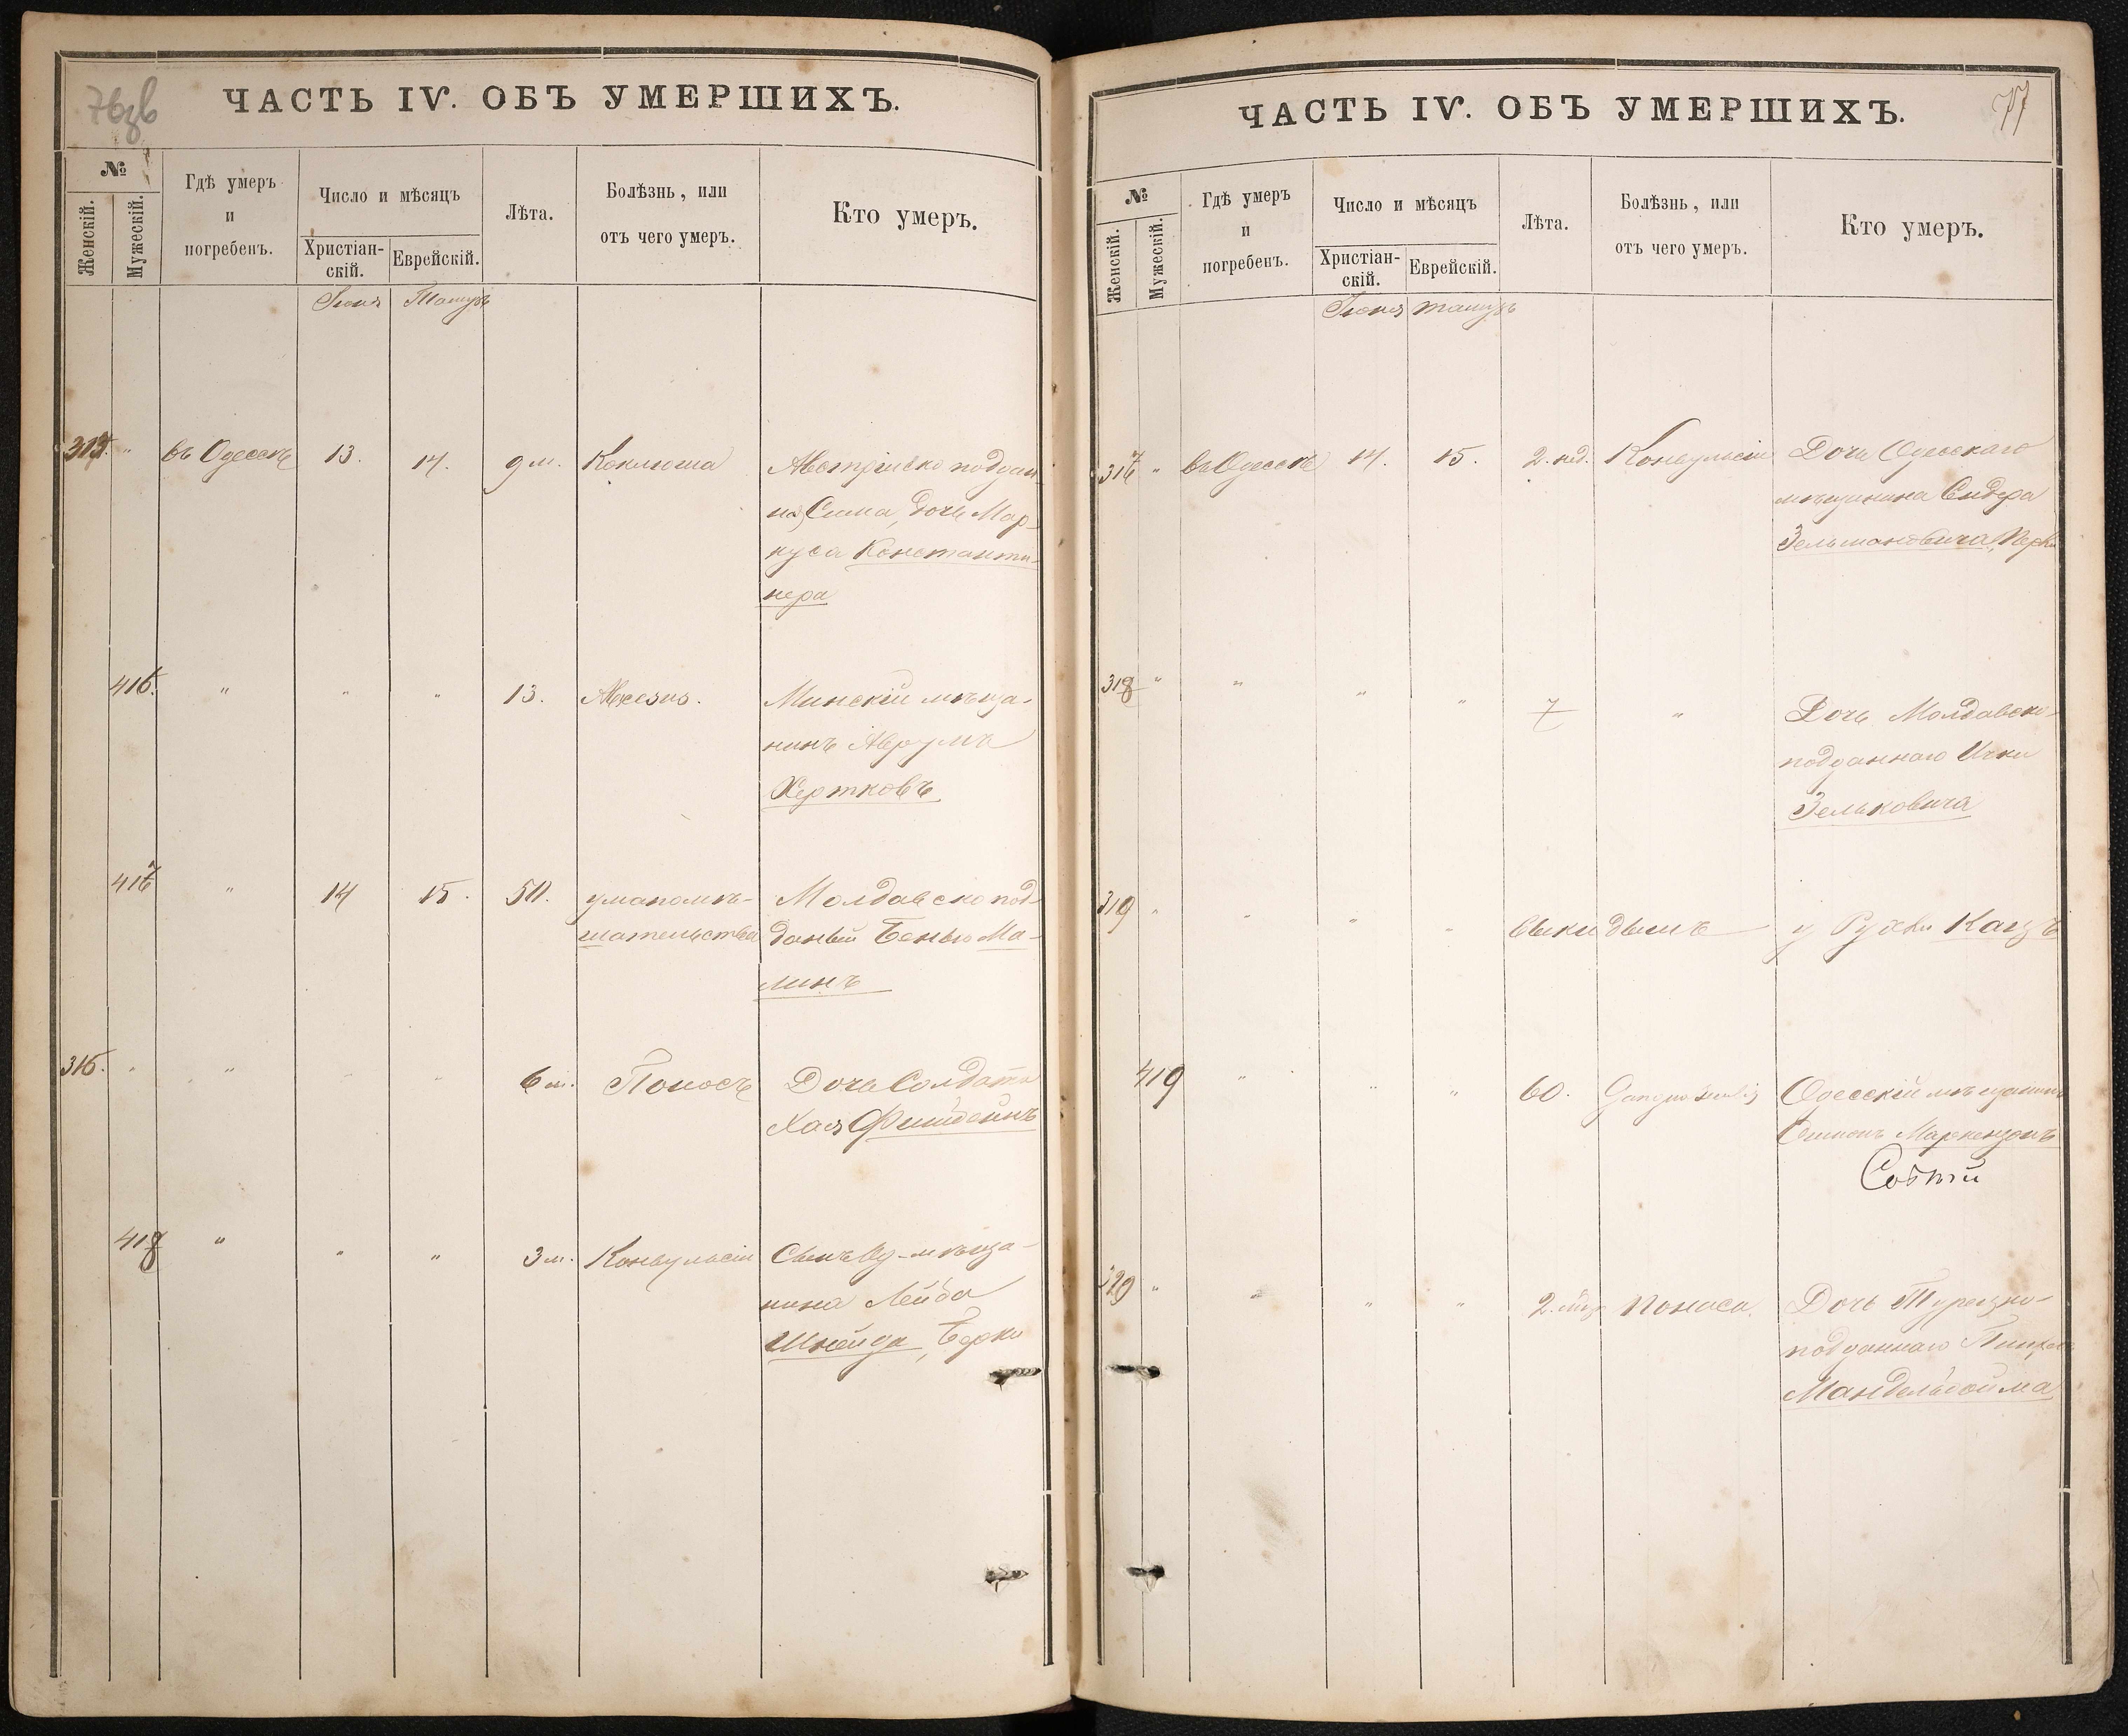 ЧАСТЬ IV. ОБЪ УМЕРШИХЪ.
№
Женскій.
Мужескій.
Гдѣ умеръ
и
погребенъ.
Число и мѣсяцъ
Христіан-
скій.
Еврейскій.
Лѣта.
Болѣзнь, или
отъ чего умеръ.
Кто умеръ.
Іюня Тамузъ
315. " въ Одессѣ 13. 14. 9 м. Коклюша Австрійско поддан
ная Сима, дочь Мар-
куса Константи-
нера
416. " " " 13. Минскій мѣща-
нинъ Аврумъ
Хертковъ
417 " 14 15. 50. умапомѣ- Молдавско под-
шательства даный Беньо Ма-
линъ
316. " " " " 6 м. Поносъ Дочь Солдата
Хая
418 " " " 3 м. Конвульсіи Сынъ Од. мѣща-
нина Лейба
Шнейда, Берко
ЧАСТЬ IV. ОБЪ УМЕРШИХЪ.
77
№
Женскій.
Мужескій.
Гдѣ умеръ
и
погребенъ.
Число и мѣсяцъ
Христіан-
скій.
Еврейскій.
Лѣта.
Болѣзнь, или
отъ чего умеръ.
Кто умеръ.
Іюня тамузъ
317 " въ Одессѣ 14. 15. 2. нед. Конвульсіи Дочь Одесскаго
мѣщанина Сидера
Зельмановича,
318 " " " " 7 " Дочь Молдавско-
подданнаго Ички
Зельковича
319 " " " " Выкидышъ у Рухли Кацъ
419 " " " 60. Одесскій мѣщанинъ
Симонъ
320 " " " " 2. Поноса. Дочь Турецко-
подданнаго
Мандельбойма